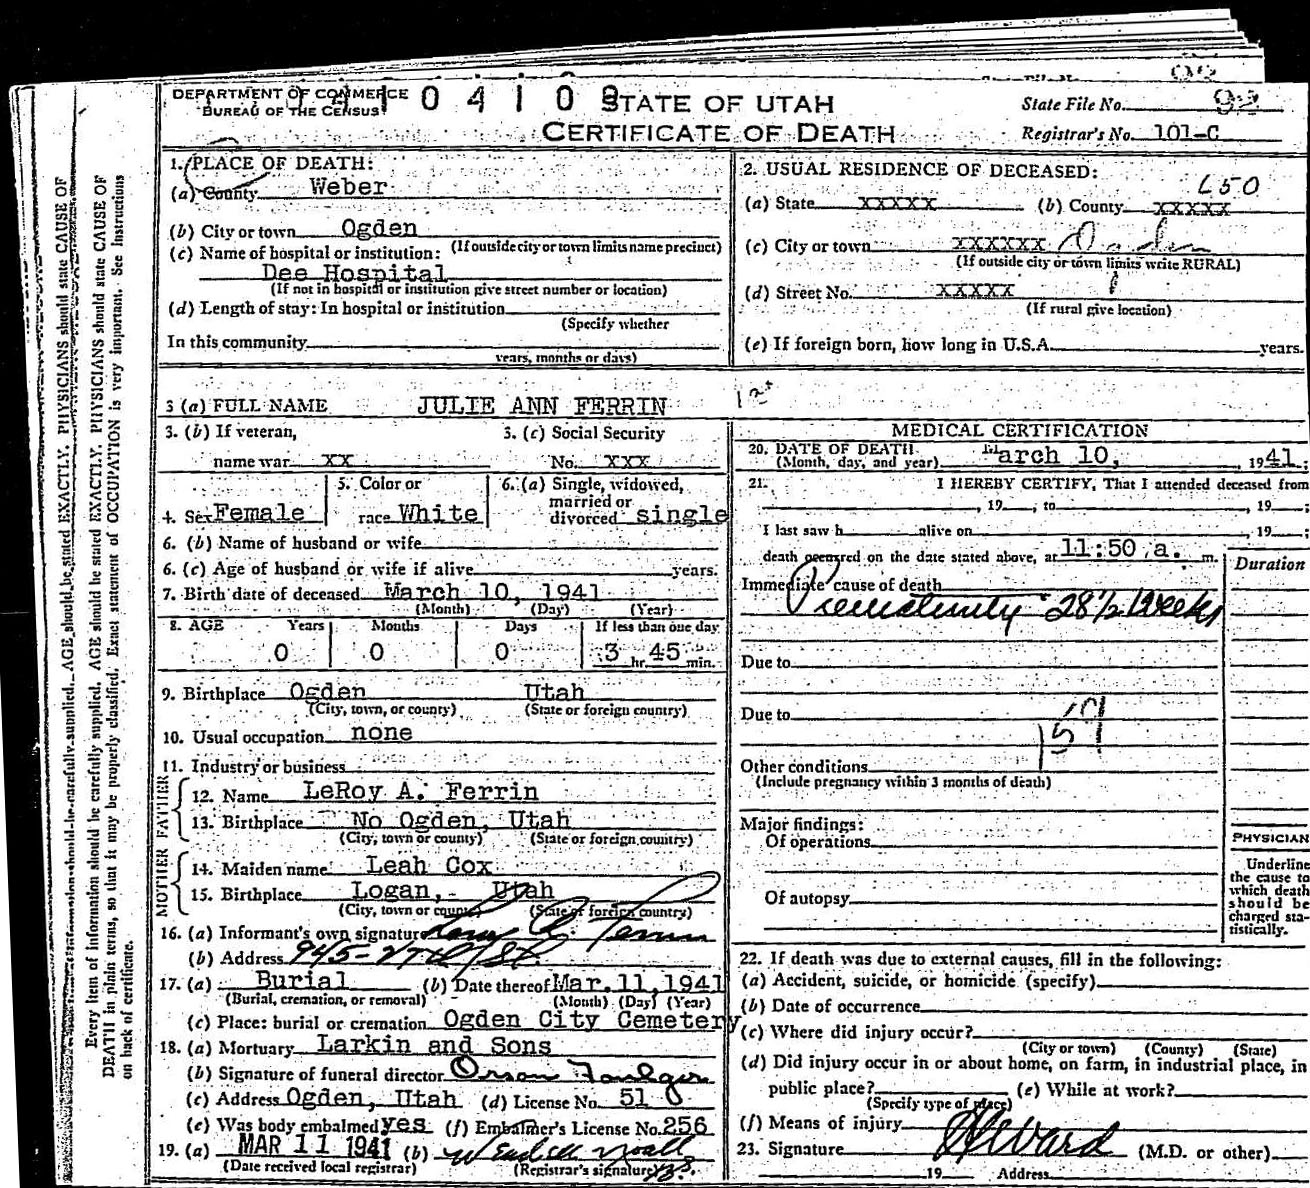 DEPARTMENT OF COMMERCE
BUREAU OF THE CENSUS
0 4 1 0 9
STATE OF UTAH
CERTIFICATE OF DEATH
State File No. 92
Registrar's No. 101-C
Every item of information should be carefully supplied. AGE should be stated EXACTLY. PHYSICIANS should state CAUSE OF
DEATH in plain terms, so that it may be properly classified. Exact statement of OCCUPATION is very important. See Instructions
on back of certificate.
1. PLACE OF DEATH:
(a) County Weber
(b) City or town Ogden
(If outside city or town limits name precinct)
(c) Name of hospital or institution:
Dee Hospital
(If not in hospital or institution give street number or location)
(d) Length of stay: In hospital or institution
(Specify whether
In this community
years, months or days)
2. USUAL RESIDENCE OF DECEASED:
L50
(a) State XXXXX (b) County XXXXX
(c) City or town XXXXXX Ogden
(If outside city or town limits write RURAL)
(d) Street No. XXXXX
(If rural give location)
(e) If foreign born, how long in U.S.A. years.
3 (a) FULL NAME JULIE ANN FERRIN
3. (b) If veteran, 3. (c) Social Security
name war XX No. XXX
4. Sex Female 5. Color or race White 6. (a) Single, widowed, married or divorced single
6. (b) Name of husband or wife
6. (c) Age of husband or wife if alive years.
7. Birth date of deceased March 10, 1941
(Month) (Day) (Year)
8. AGE Years Months Days If less than one day
0 0 0 3 hr. 45 min.
9. Birthplace Ogden Utah
(City, town, or county) (State or foreign country)
10. Usual occupation none
11. Industry or business
FATHER
12. Name LeRoy A. Ferrin
13. Birthplace No Ogden, Utah
(City, town or county) (State or foreign country)
MOTHER
14. Maiden name Leah Cox
15. Birthplace Logan, - Utah
(City, town or county) (State or foreign country)
16. (a) Informant's own signature Leroy A. Ferrin
(b) Address 945-27th St.
17. (a) Burial (b) Date thereof Mar. 11, 1941
(Burial, cremation, or removal) (Month) (Day) (Year)
(c) Place: burial or cremation Ogden City Cemetery
18. (a) Mortuary Larkin and Sons
(b) Signature of funeral director Orson Foulger
(c) Address Ogden, Utah (d) License No. 51
(e) Was body embalmed yes (f) Embalmer's License No. 256
19. (a) MAR 11 1941 (b) Wendell Noall
(Date received local registrar) (Registrar's signature)
MEDICAL CERTIFICATION
20. DATE OF DEATH
(Month, day, and year) March 10, 1941;
21. I HEREBY CERTIFY, That I attended deceased from
, 19 ; to , 19 ;
I last saw h alive on , 19 ;
death occurred on the date stated above, at 11:50 a. m.
Duration
Immediate cause of death
Prematurity 28½ Weeks
Due to
Due to
159
Other conditions
(Include pregnancy within 3 months of death)
Major findings:
Of operations
Of autopsy
PHYSICIAN
Underline
the cause to
which death
should be
charged sta-
tistically.
22. If death was due to external causes, fill in the following:
(a) Accident, suicide, or homicide (specify)
(b) Date of occurrence
(c) Where did injury occur?
(City or town) (County) (State)
(d) Did injury occur in or about home, on farm, in industrial place, in
public place? (e) While at work?
(Specify type of place)
(f) Means of injury
23. Signature Ward (M.D. or other)
19 Address